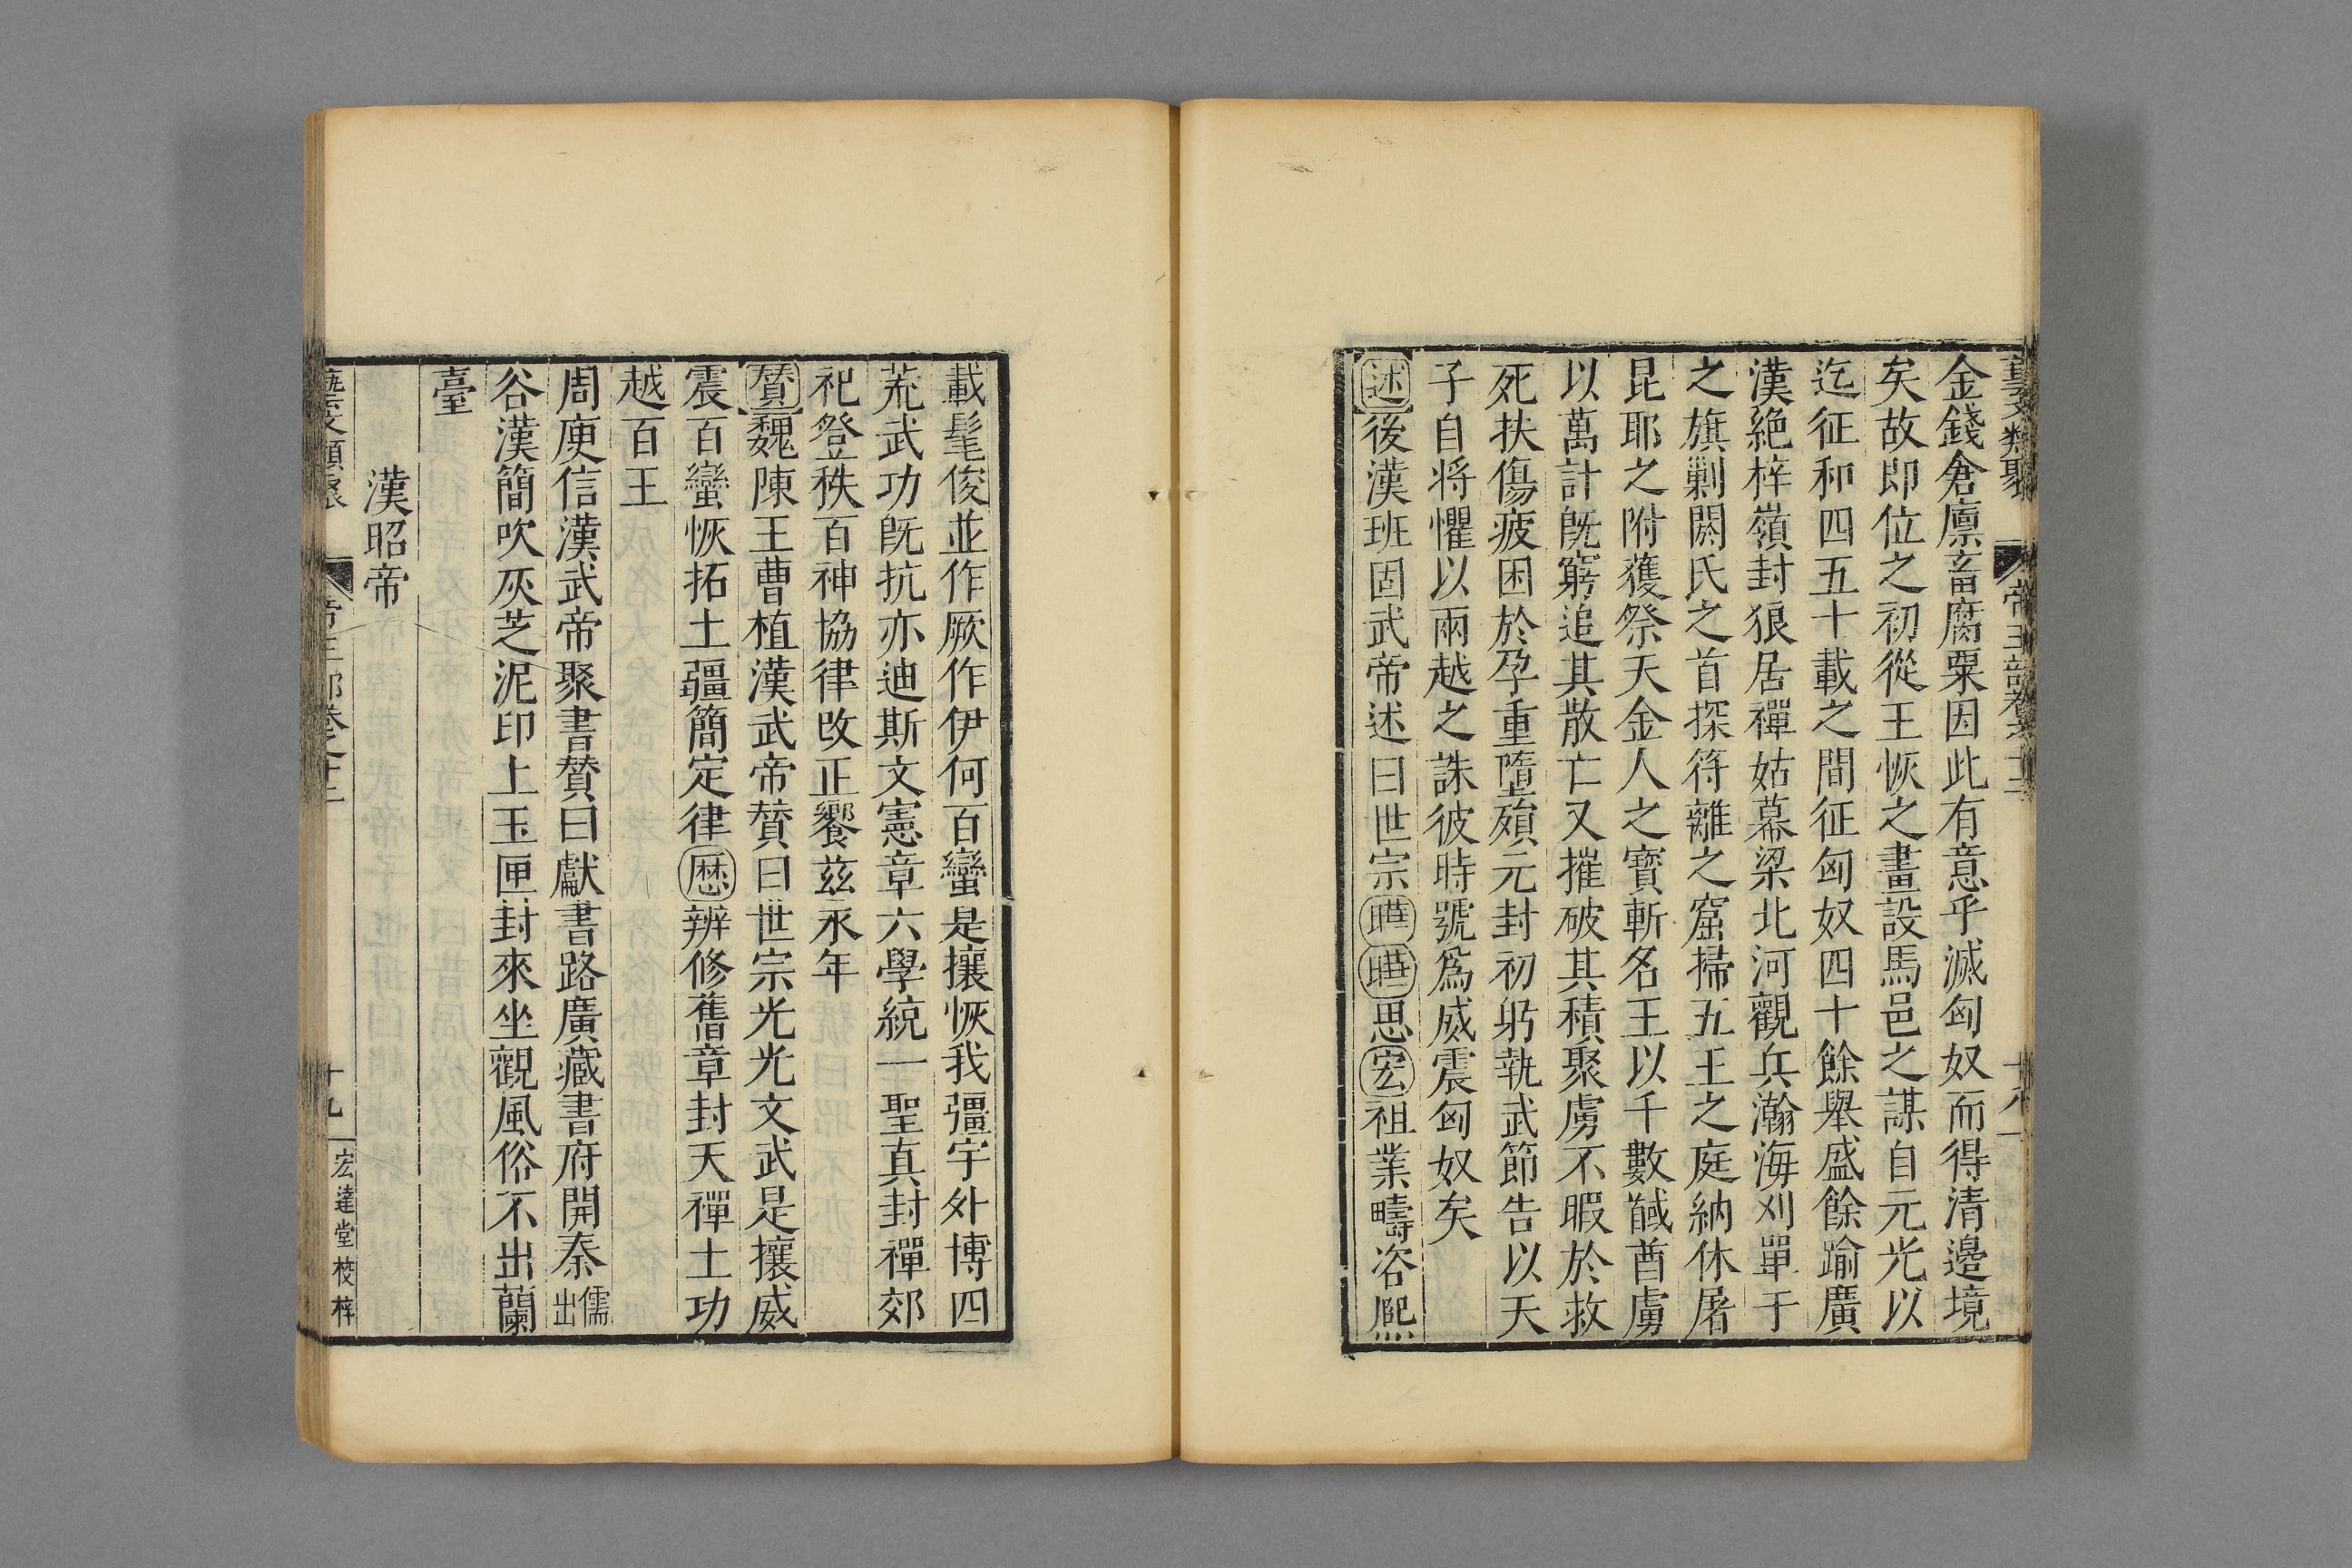 藝文類聚 帝王部卷之十二 十八
金錢倉廪畜腐粟因此有意乎滅匈奴而得清邊境
矣故即位之初從王恢之畫設馬邑之謀自元光以
迄征和四五十載之間征匈奴四十餘舉盛餘踰廣
漢絶梓嶺封狼居禪姑幕梁北河觀兵瀚海刈單于
之旗剿閼氏之首探符離之窟掃五王之庭納休屠
昆耶之附獲祭天金人之寶斬名王以千數馘酋虜
以萬計旣窮追其散亡又摧破其積聚虜不暇於救
死扶傷疲困於孕重墮殰元封初躬執武節告以天
子自將懼以兩越之誅彼時號爲威震匈奴矣
述後漢班固武帝述曰世宗曄曄思宏祖業疇咨熈
載髦俊並作厥作伊何百蠻是攘恢我疆宇外博四
荒武功旣抗亦迪斯文憲章六學統一聖真封禪郊
祀登秩百神協律改正饗茲永年
贊魏陳王曹植漢武帝贊曰世宗光光文武是攘威
震百蠻恢拓土疆簡定律歴辨修舊章封天禪土功
越百王
周庾信漢武帝聚書贊曰獻書路廣藏書府開秦儒出
谷漢簡吹灰芝泥印上玉匣封來坐觀風俗不出蘭
臺
漢昭帝
藝文類聚 帝王部卷之十二 十九 宏達堂校梓